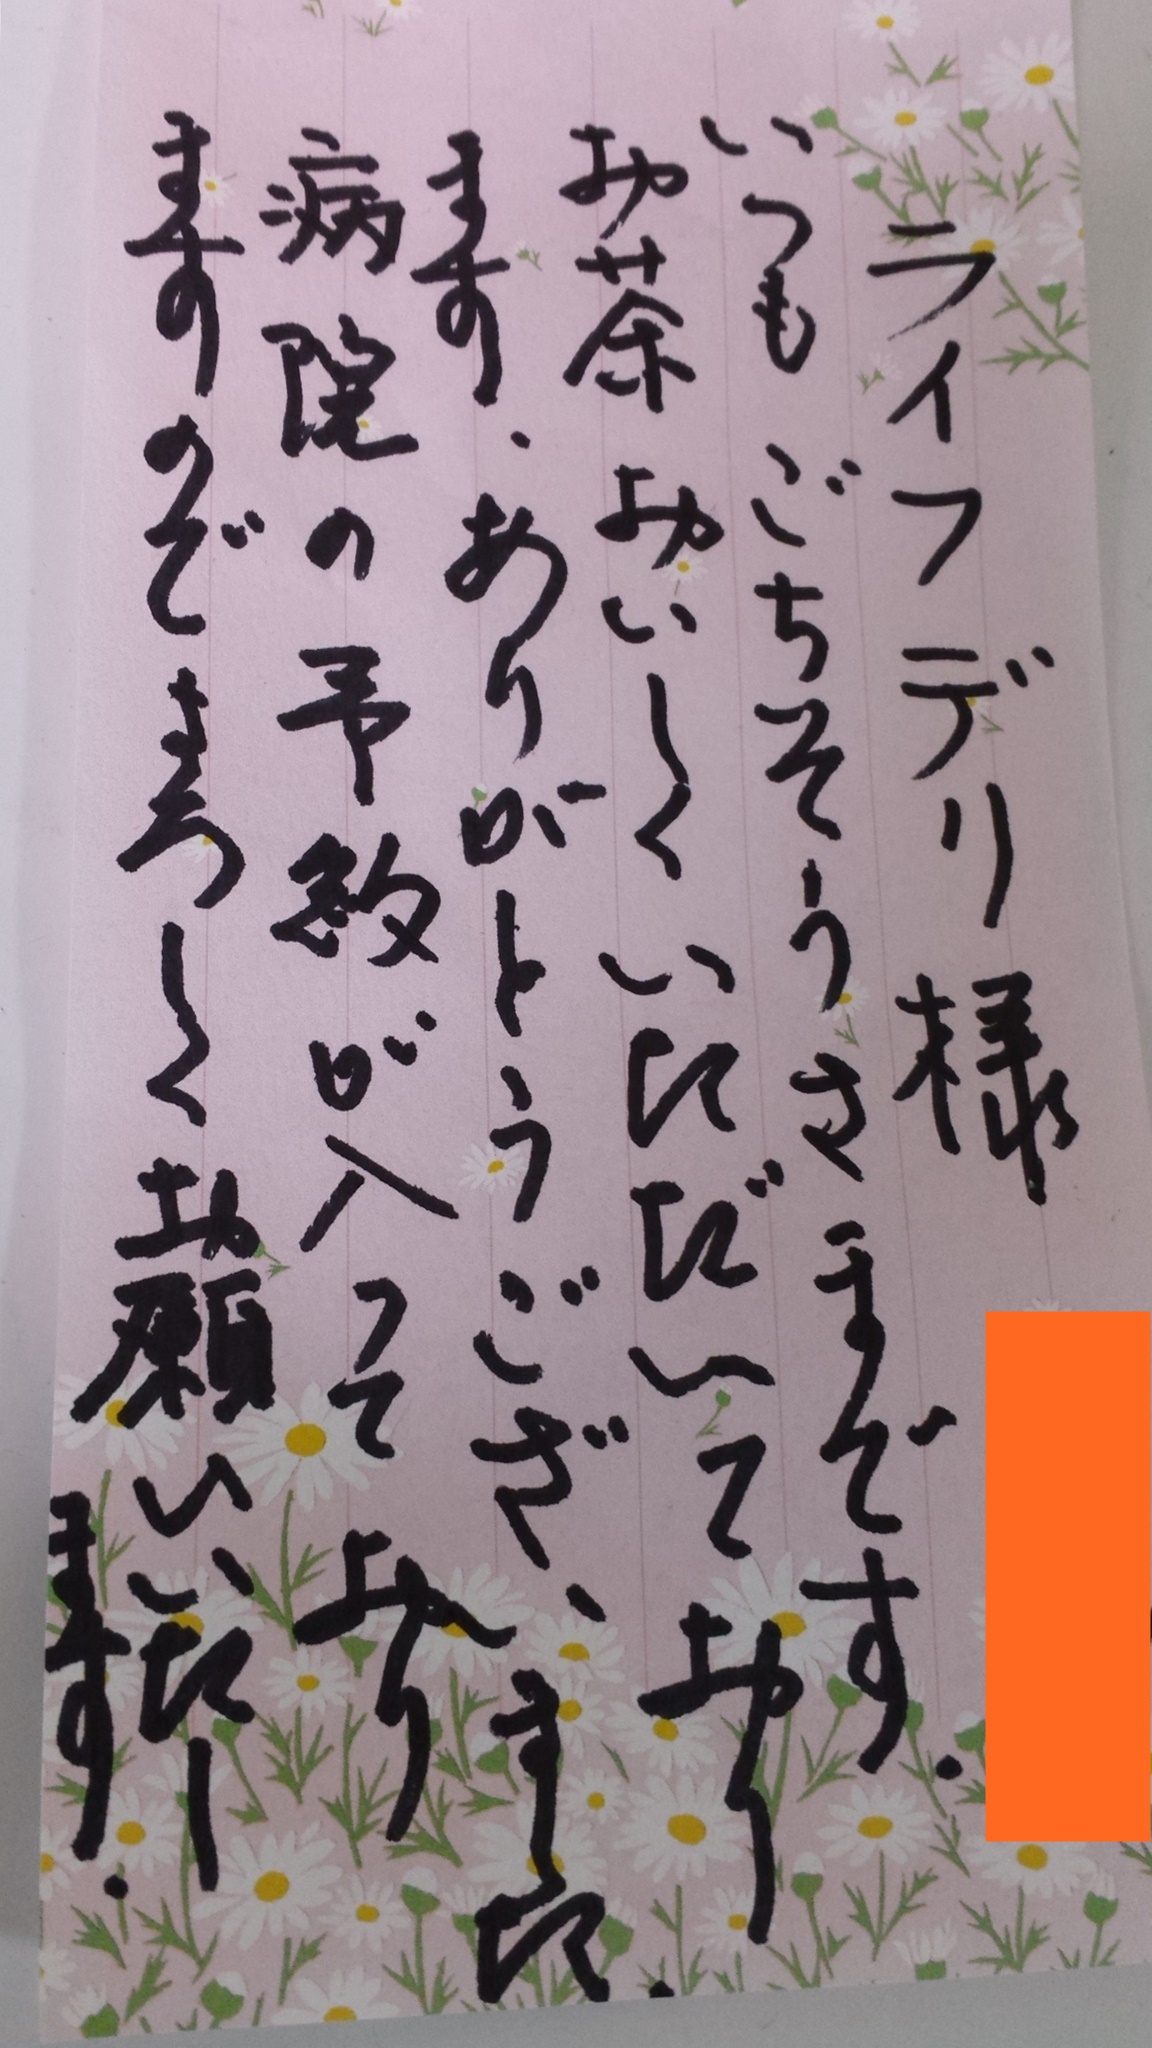 ライフデリ様
いつもごちそうさまです.
お茶おいしくいただいており
ます.ありがとうございました.
病院の予約が入っており
ますのでよろしくお願いいたし
ます.